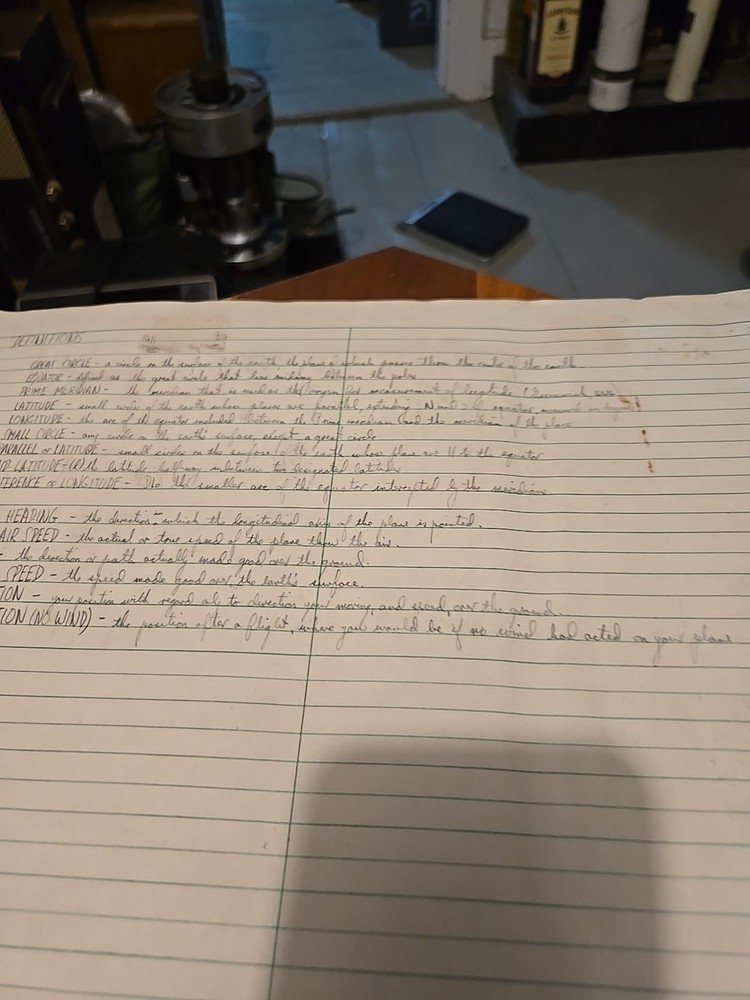 JAMESON
DEFINITIONS
GREAT CIRCLE - a circle on the surface of the earth, the plane of which passes thru the center of the earth.
EQUATOR - defined as the great circle that lies midway between the poles
PRIME MERIDIAN - the meridian that is used as the origin for measurement of longitude (Greenwich,
LATITUDE - small circles of the earth whose planes are parallel, extending N and S of equator,
LONGITUDE - the arc of the equator included between the Prime meridian and the meridian of the place
SMALL CIRCLE - any circle on the earth's surface, except a great circle
PARALLEL OF LATITUDE - small circles on the surface of the earth whose plane are || to the equator
D-LATITUDE the latitude half way inbetween two designated latitudes
FERENCE OF LONGITUDE - the smaller arc of the equator intercepted by the meridians
HEADING - the direction in which the longitudinal axis of the plane is pointed.
AIR SPEED - the actual or true speed of the plane thru the air.
- the direction or path actually made good over the ground.
SPEED - the speed made good over the earth's surface.
TION - your position with regard to direction your moving, and speed, over the ground.
TION (NO WIND) - the position after a flight, where you would be if no wind had acted on your plane